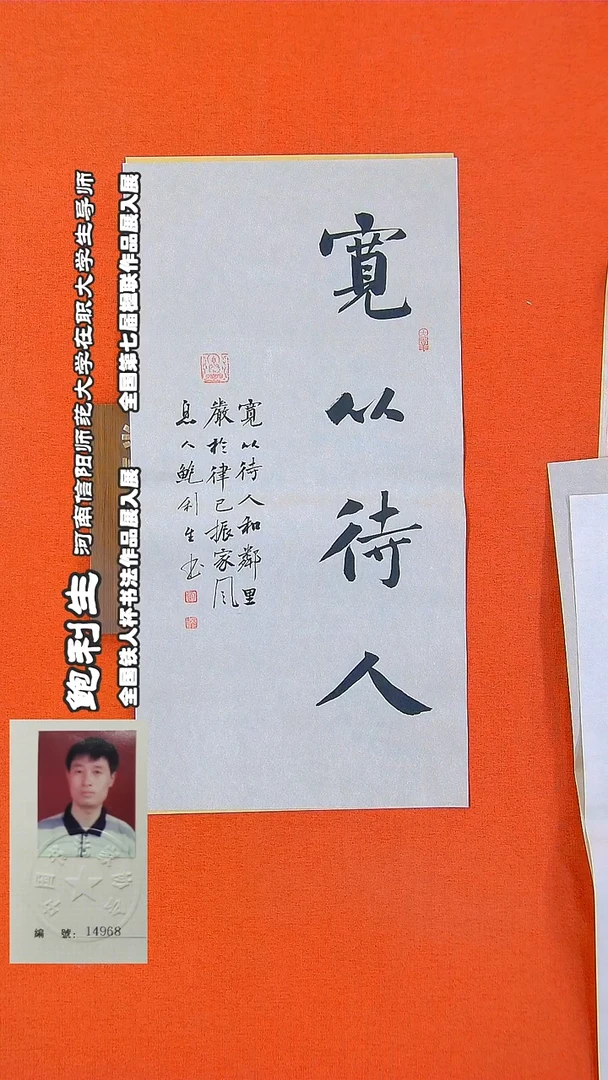 寬以待人
寬以待人和鄰里
嚴於律己振家风
息人鮑利生书
鲍利生 河南信阳师范大学在职大学生导师
全国铁人杯书法作品展入展 全国第七届楹联作品展入展
編 號: 14968